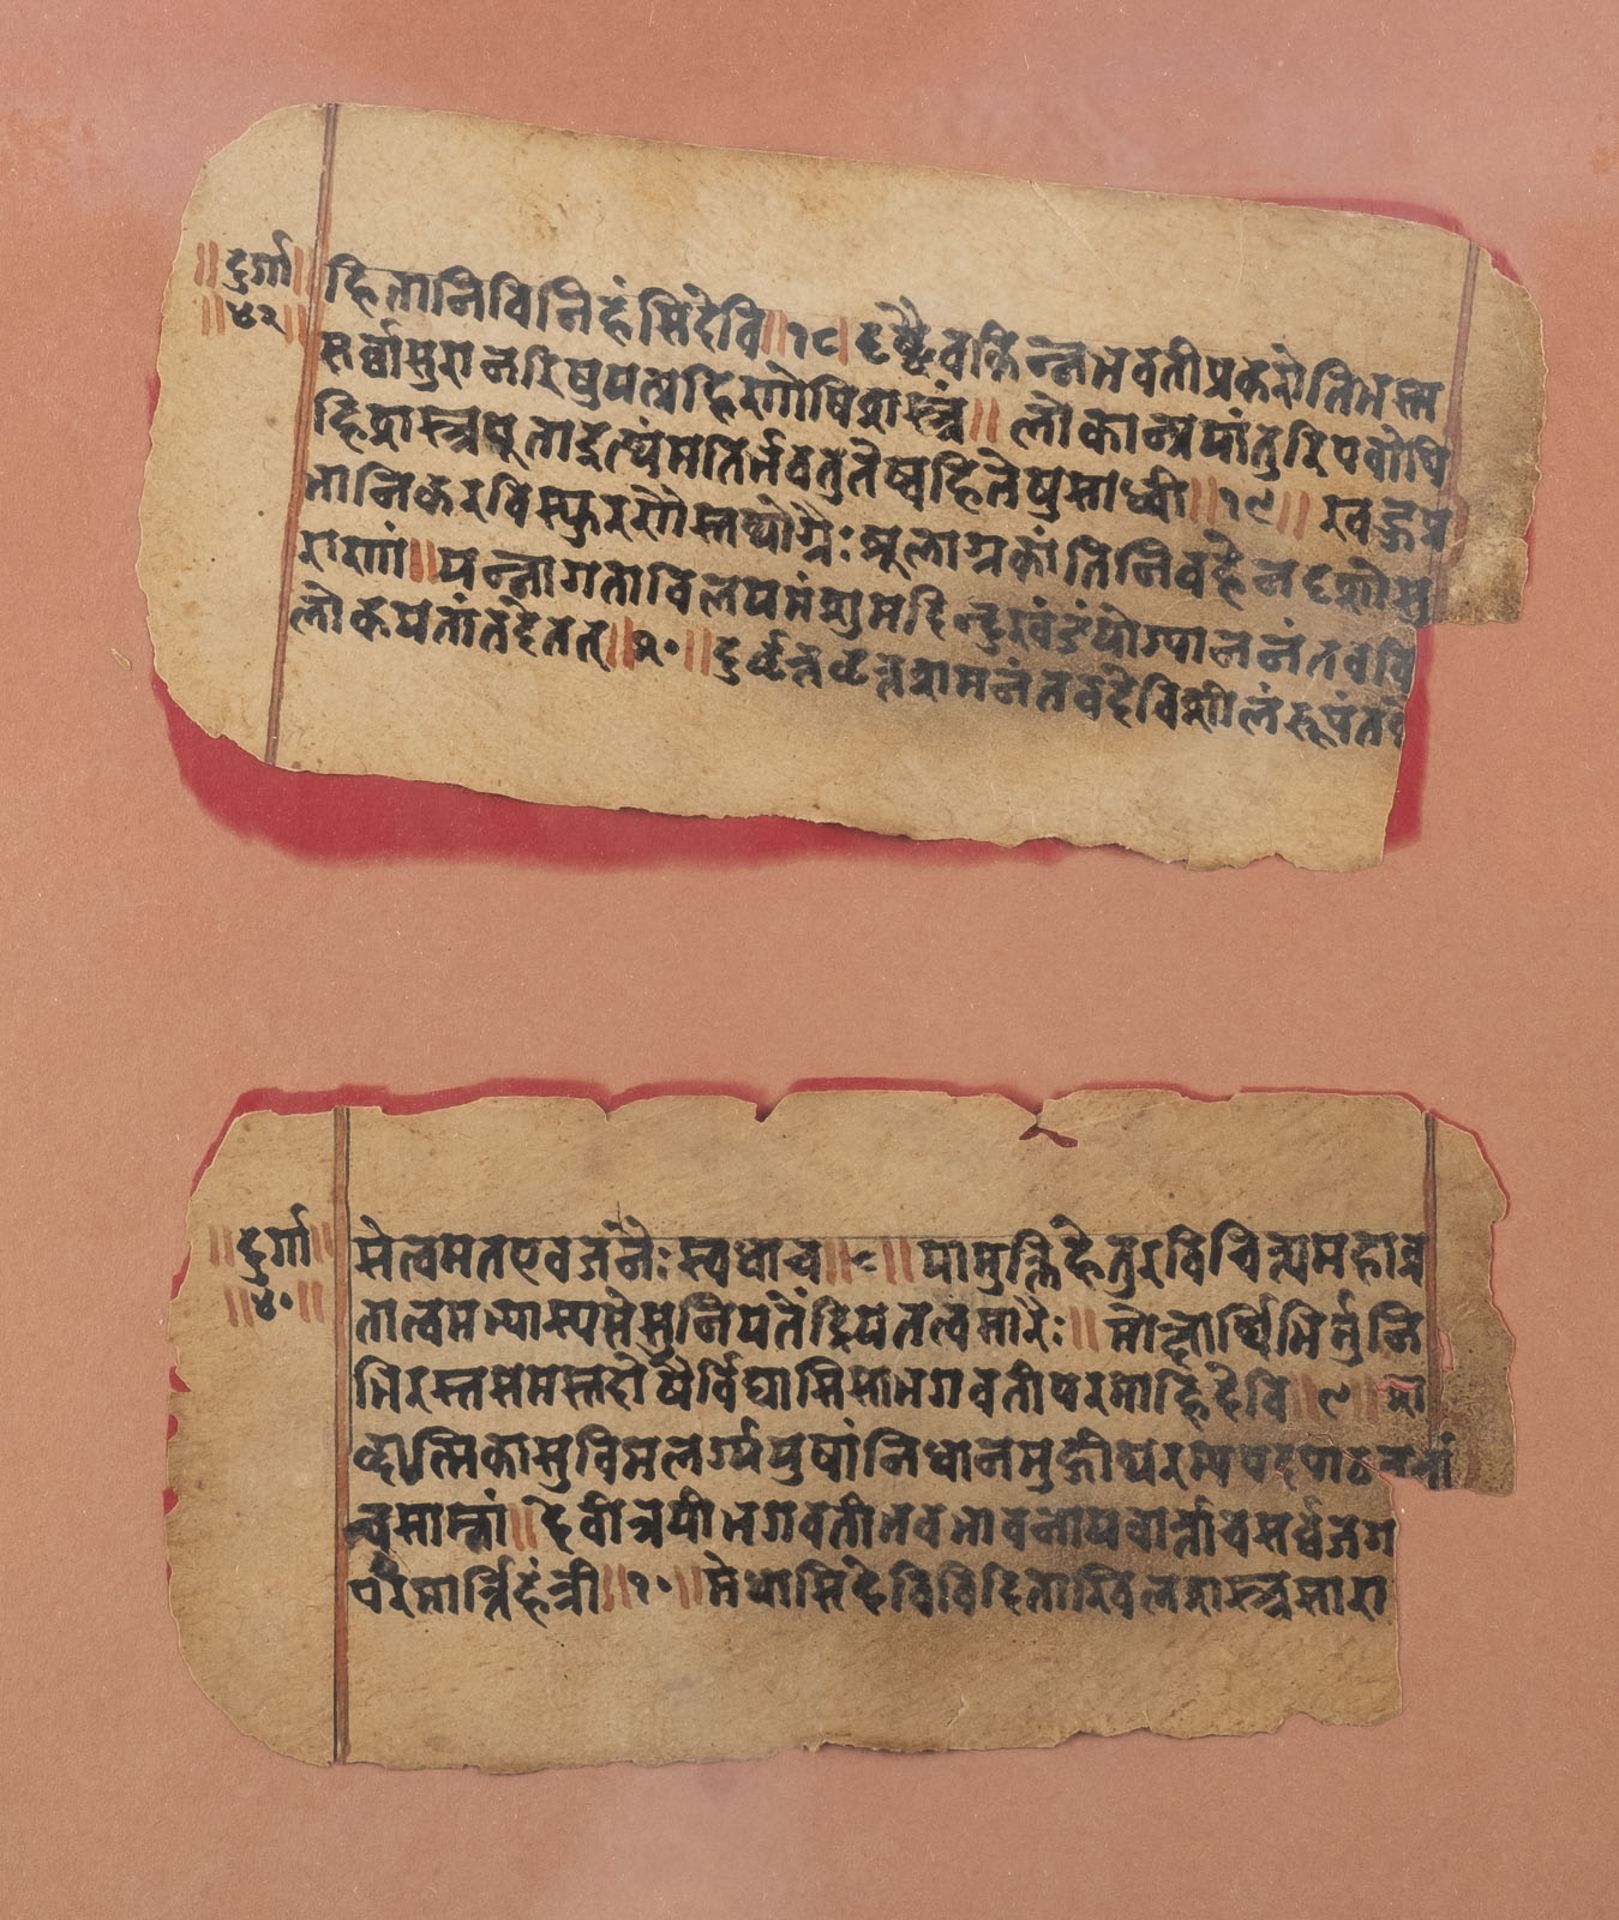 ॥दुर्गा॥
॥४२॥
हितानिविनिहंसिदेवि॥१८॥दृष्ट्वैवकिन्नभवतीप्रकरोतिभस्म
सर्व्वासुरानरिषुयत्प्रहिणोषिशस्त्रं॥लोकान्प्रयांतुरिपवोपि
हिशस्त्रपूताइत्थंमतिर्भवतुतेष्वहितेषुसाध्वी॥१९॥खड्गप्र
भानिकरविस्फुरणैस्तथोग्रैःशूलाग्रकांतिनिवहेनदृशोसु
राणां॥यन्नागताविलयमंशुमदिन्दुखंडंयोग्याननंतववि
लोकयतांतदेतत्॥२०॥दुर्वृत्तवृत्तशमनंतवदेविशीलंरूपंत
॥दुर्गा॥
॥४०॥
सेत्वमतएवजनैःस्वधाच॥८॥यामुक्तिहेतुरविचिन्त्यमहाव्र
तात्वमभ्यास्यसेसुनियतेंद्रियतत्वसारैः॥मोक्षार्थिभिर्मुनि
भिरस्तसमस्तदोषैर्विद्यासिसाभगवतीपरमाहिदेवि॥९॥श
ब्दात्मिकासुविमलर्ग्यजुषांनिधानमुद्गीथरम्यपदपाठवतां
चसाम्नां॥देवीत्रयीभगवतीभवभावनायवार्त्ताचसर्वजग
परमार्त्तिहंत्री॥१०॥मेधासिदेविविदिताखिलशास्त्रसारा